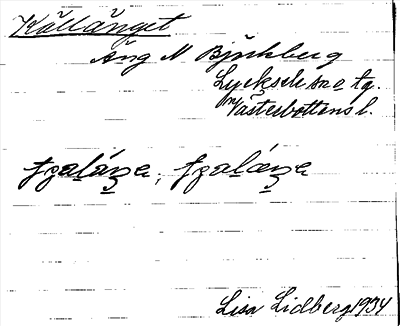 Källänget
Äng N Björkberg
Lycksele sn o tg.
Västerbottens l.
Lisa Lidberg 1934